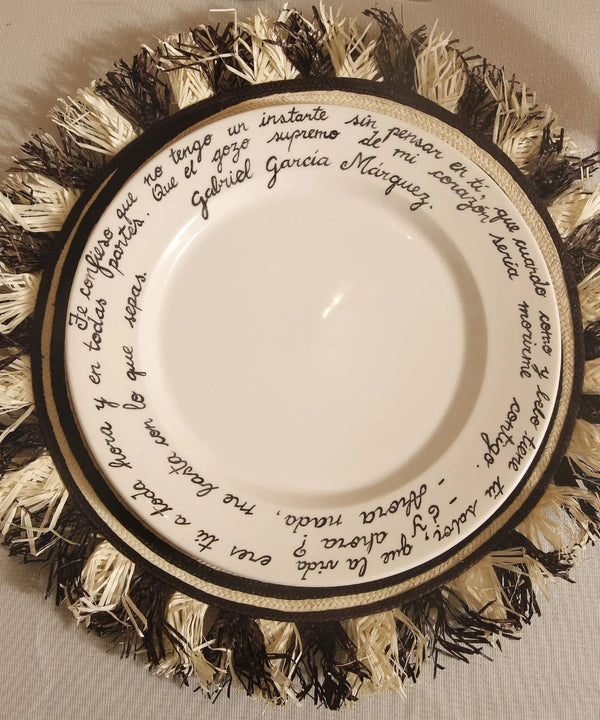 Te confieso que no tengo un instante sin pensar en ti, que cuando como y bebo tiene tu sabor, que la vida eres tu a toda hora y en todas
partes. Que el gozo supremo de mi corazón seria morirme contigo.
- ¿y ahora?
- Ahora nada, me basta con lo que sepas.
Gabriel García Márquez.